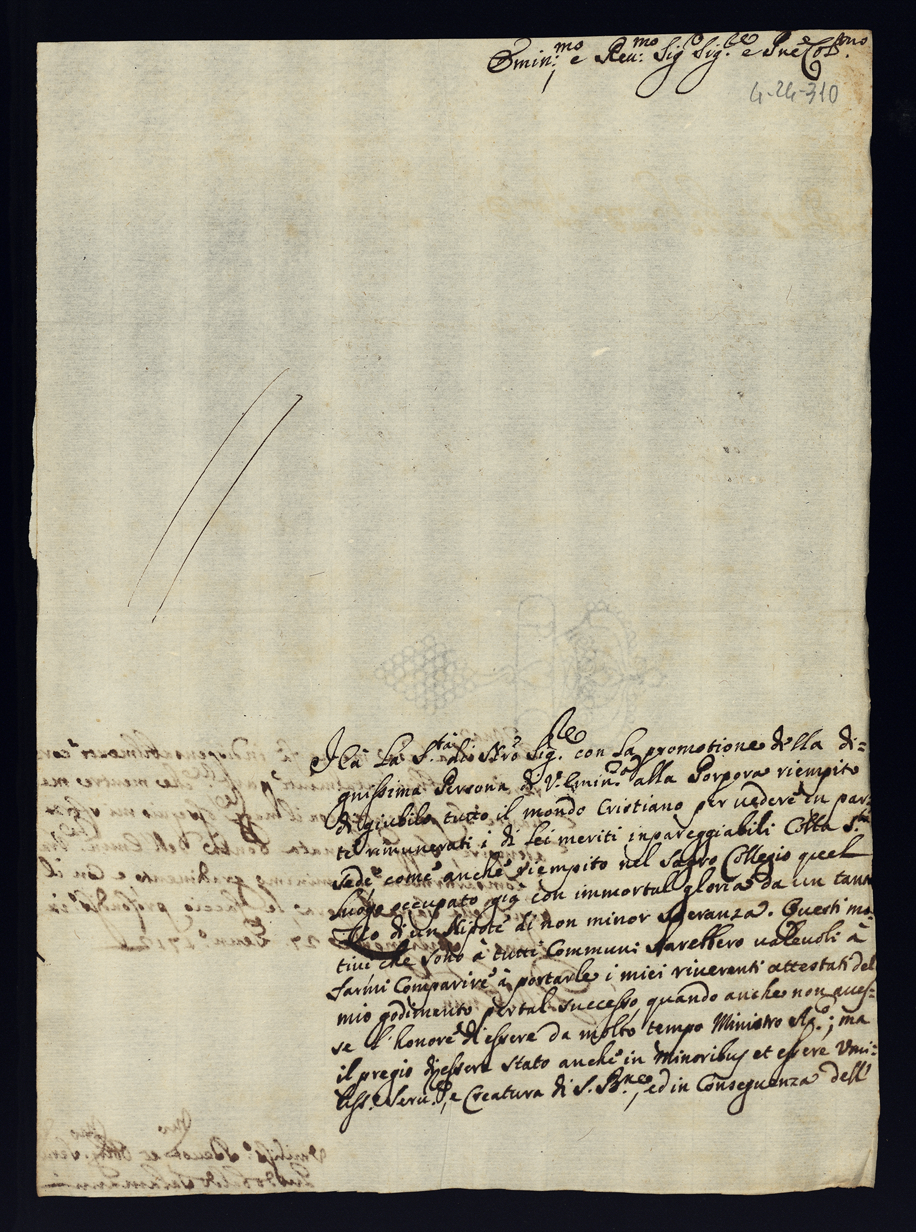 Emin.mo e Reu.mo Sig.r Sig.re e Pne Col.mo
4-24-310
Hà La S.tà di Nrõ Sig.re con la promotione della di=
gnissima Persona di V. Emin.a alla Porpora riempito
di giubilo tutto il mondo Cristiano per uedere in par=
te rimunerati i di lei meriti inpareggiabili Colla S.ta
sede come anche riempito nel Sagro Collegio quel
luogo occupato già con immortal gloria da un tanto
Zio di un Nipote di non minor speranza. Questi mo=
tiui che sono à tutti Communi sarebbero ualeuoli à
farmi Comparire à portarle i miei riuerenti attestati del
mio godimento per tal successo, quando anche non aues=
se l'honore d'essere da molto tempo Ministro Ap.co; ma
il pregio d'essere stato anche in Minoribus et essere Vmi=
liss.o Seru.re, e Creatura di S. B.ne, ed in Conseguenza dell'